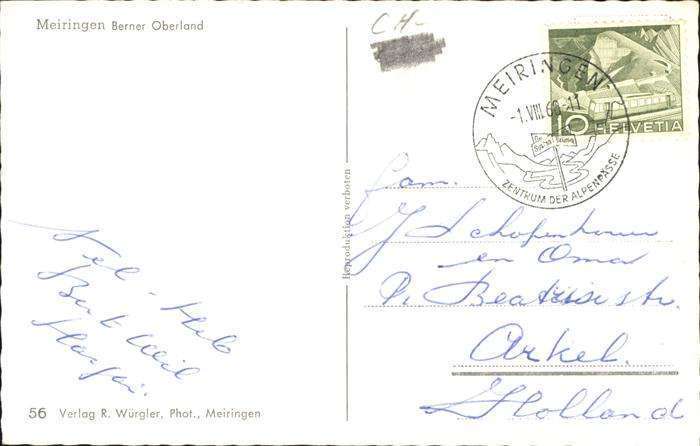 Meiringen Berner Oberland
CH-
MEIRINGEN
-1.VIII 60-11
10 HELVETIA
ZENTRUM DER ALPENPÄSSE
Reproduktion verboten
Fam.
en Oma
P. Beatrixstr.
Arkel.
Holland
Bert Weil
56 Verlag R. Würgler, Phot., Meiringen